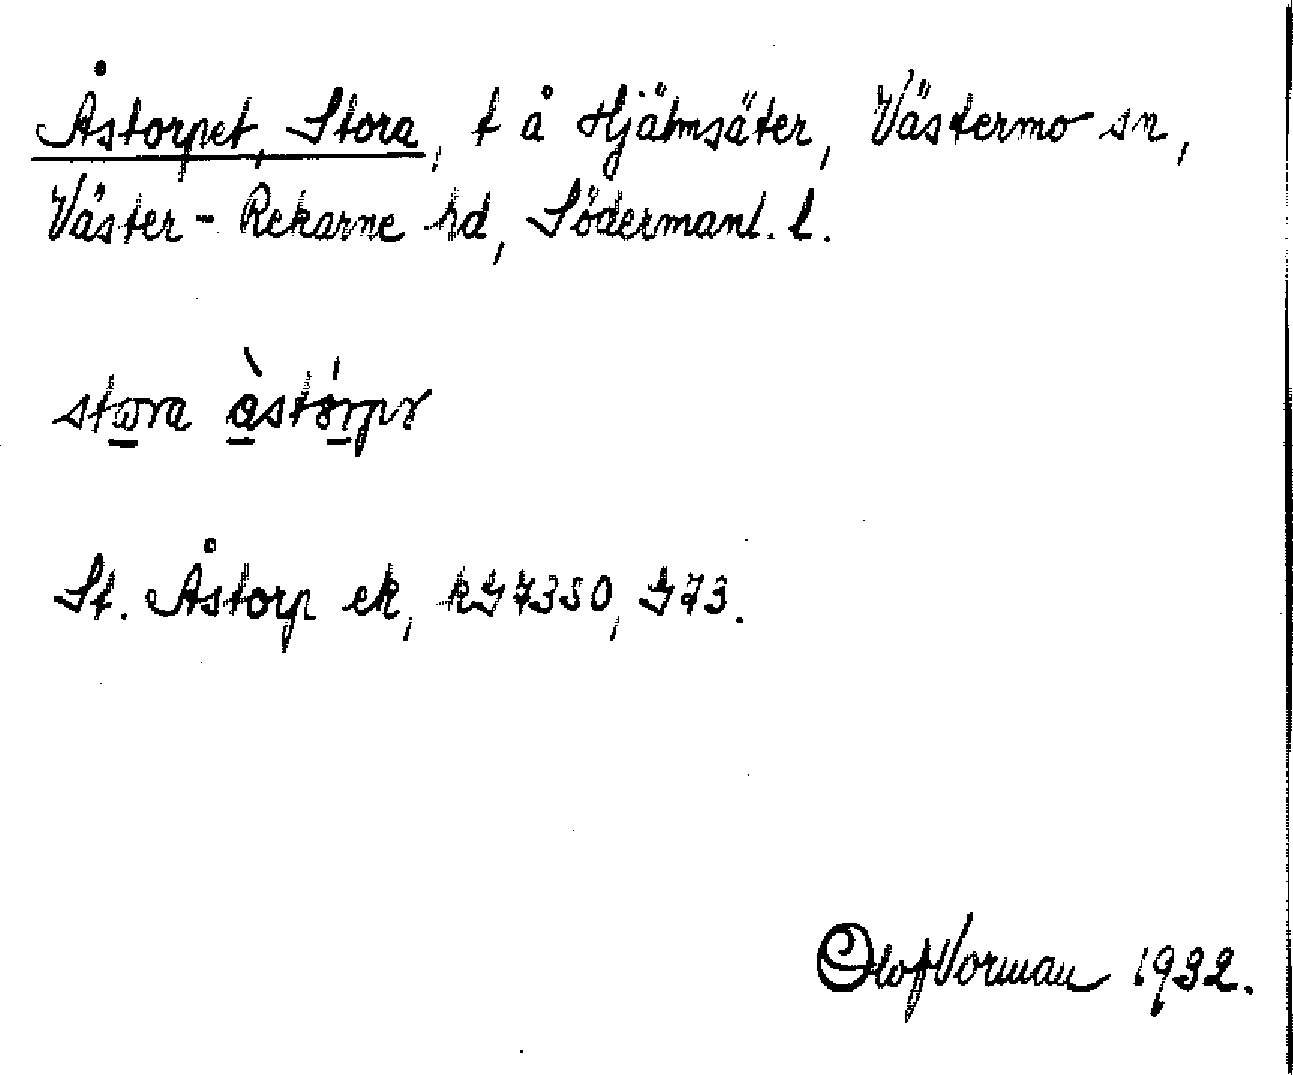 Åstorpet, Stora, t å Hjälmsäter, Västermo sn,
Väster-Rekarne hd, Södermanl. l.
stora àstórpr
St. Åstorp ek, kG7350, G73.
Olof Vorman 1932.